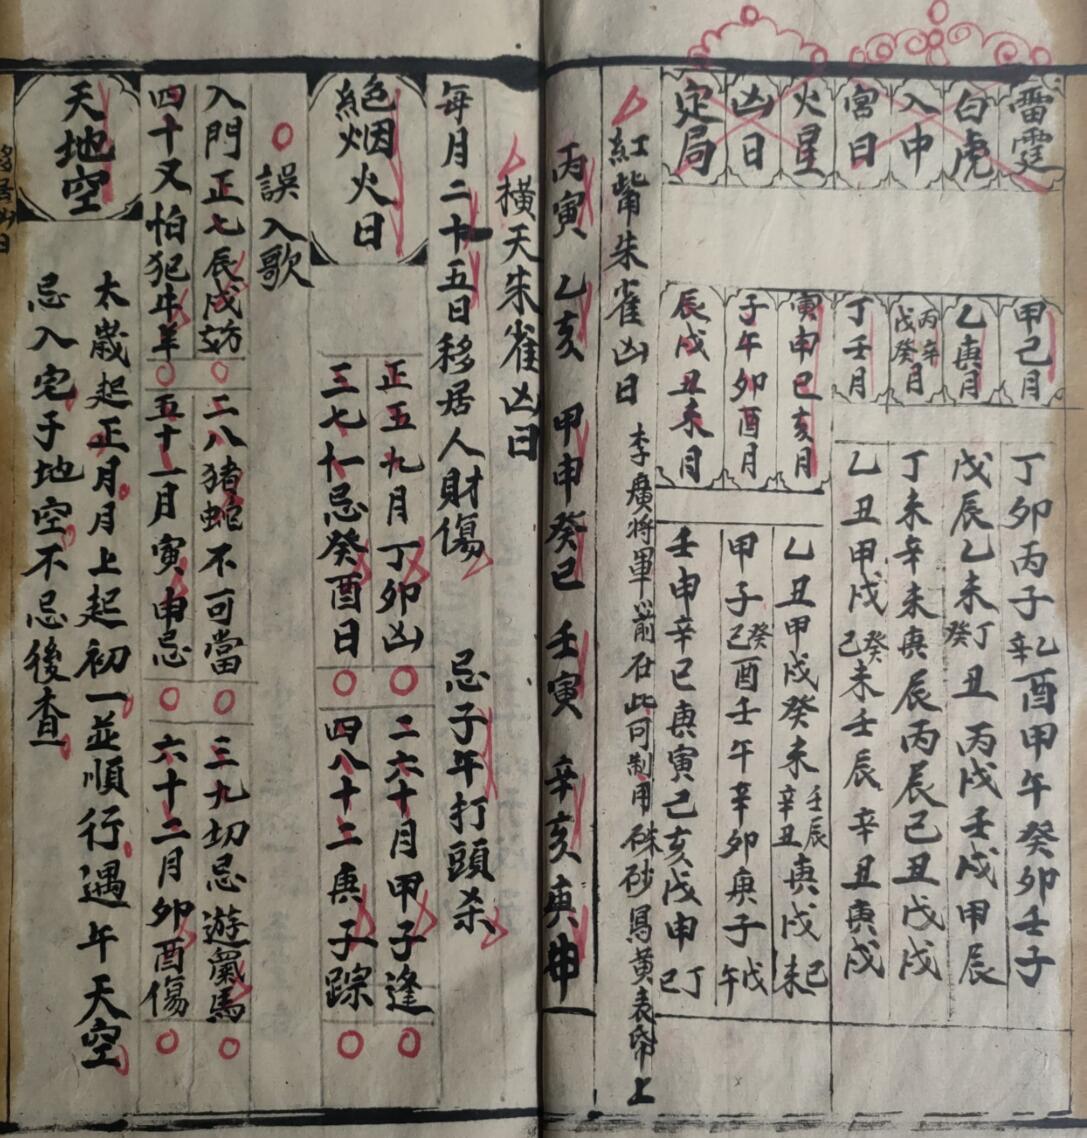 雷霆
白虎
入中
宮日
火星
凶日
定局
甲己月
乙庚月
丙辛戊癸月
丁壬月
寅申巳亥月
子午卯酉月
辰戌丑未月
丁卯丙子乙辛酉甲午癸卯壬子
戊辰乙未丁癸丑丙戌壬戌甲辰
丁未辛未庚辰丙辰己丑戊戌
乙丑甲戌癸己未壬辰辛丑庚戌
乙丑甲戌癸未壬辰辛丑庚戌己未
甲子癸己酉壬午辛卯庚子戊午
壬申辛巳庚寅己亥戊申丁巳
紅嘴朱雀凶日 李廣將軍箭在此可制用硃砂寫黃表帋上
丙寅 乙亥 甲申 癸巳 壬寅 辛亥 庚申
橫天朱雀凶日
每月二十五日移居人財傷 忌子午打頭杀
絕烟火日
正五九月丁卯凶 二六十月甲子逢
三七十一忌癸酉日 四八十二庚子踪
誤入歌
入門正七辰戌妨 二八猪蛇不可當 三九切忌遊氣馬
四十又怕犯牛羊 五十一月寅申忌 六十二月卯酉傷
天地空
太歲起正月月上起初一並順行遇午天空
忌入宅子地空不忌後查